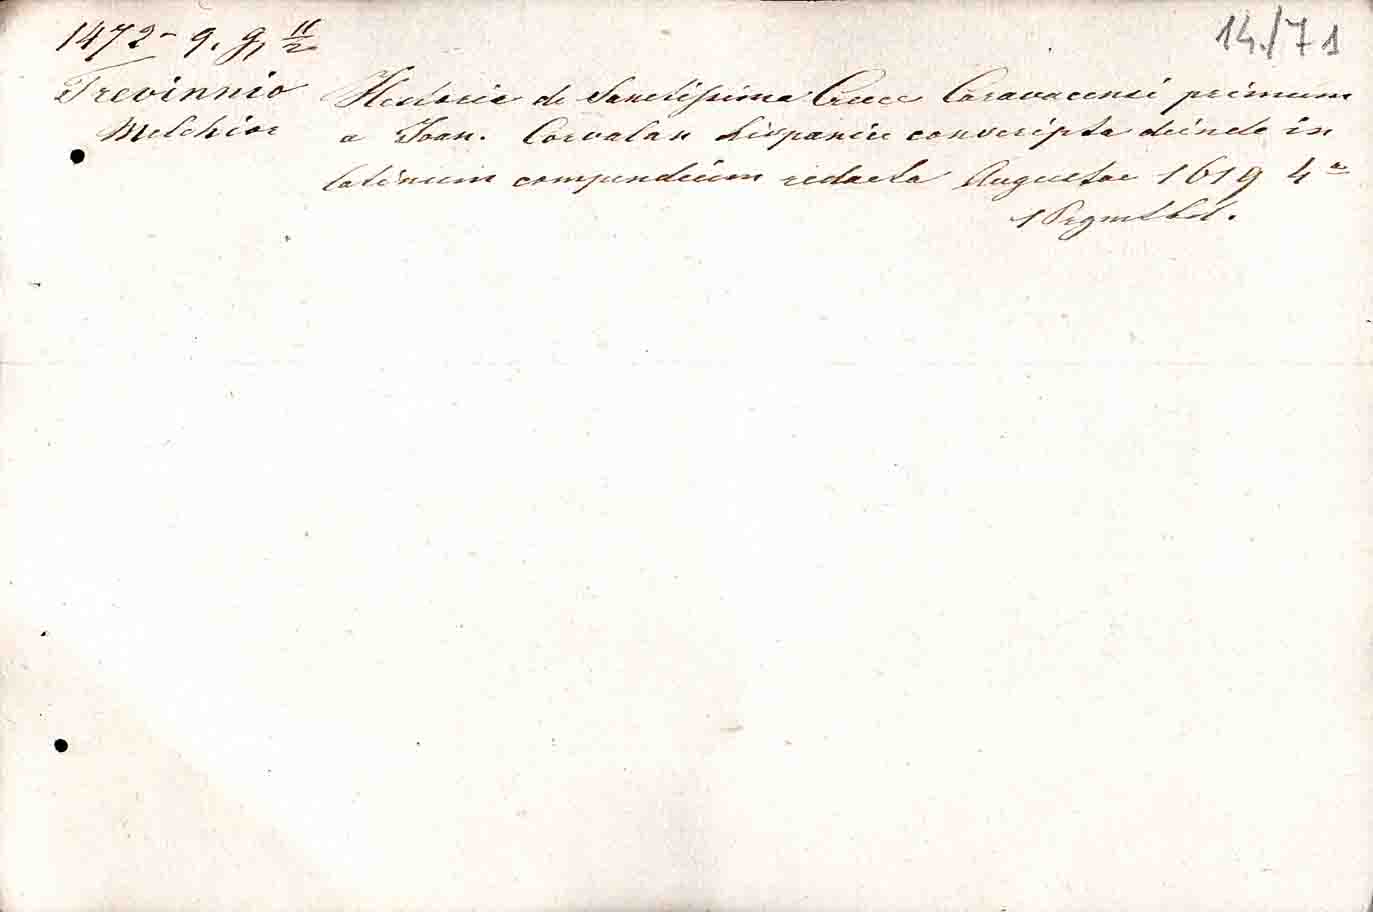 1472 - q. g, 11/2
14./71
Trevinnio Historia de Sanctissima Cruce Caravacensi primum
Melchior a Joan. Corvalan hispanice conscripta deinde in
latinum compendium redacta Augustae 1619 4°
1 Prgmtbd.